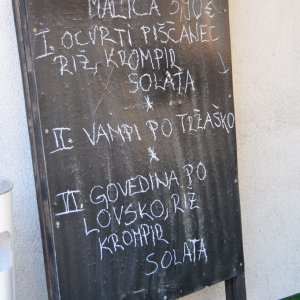 MALICA
I. OCVRTI PIŠČANEC
RIŽ, KROMPIR
SOLATA
*
II. VAMPI PO TRŽAŠKO
*
III. GOVEDINA PO
LOVSKO, RIŽ
KROMPIR
SOLATA